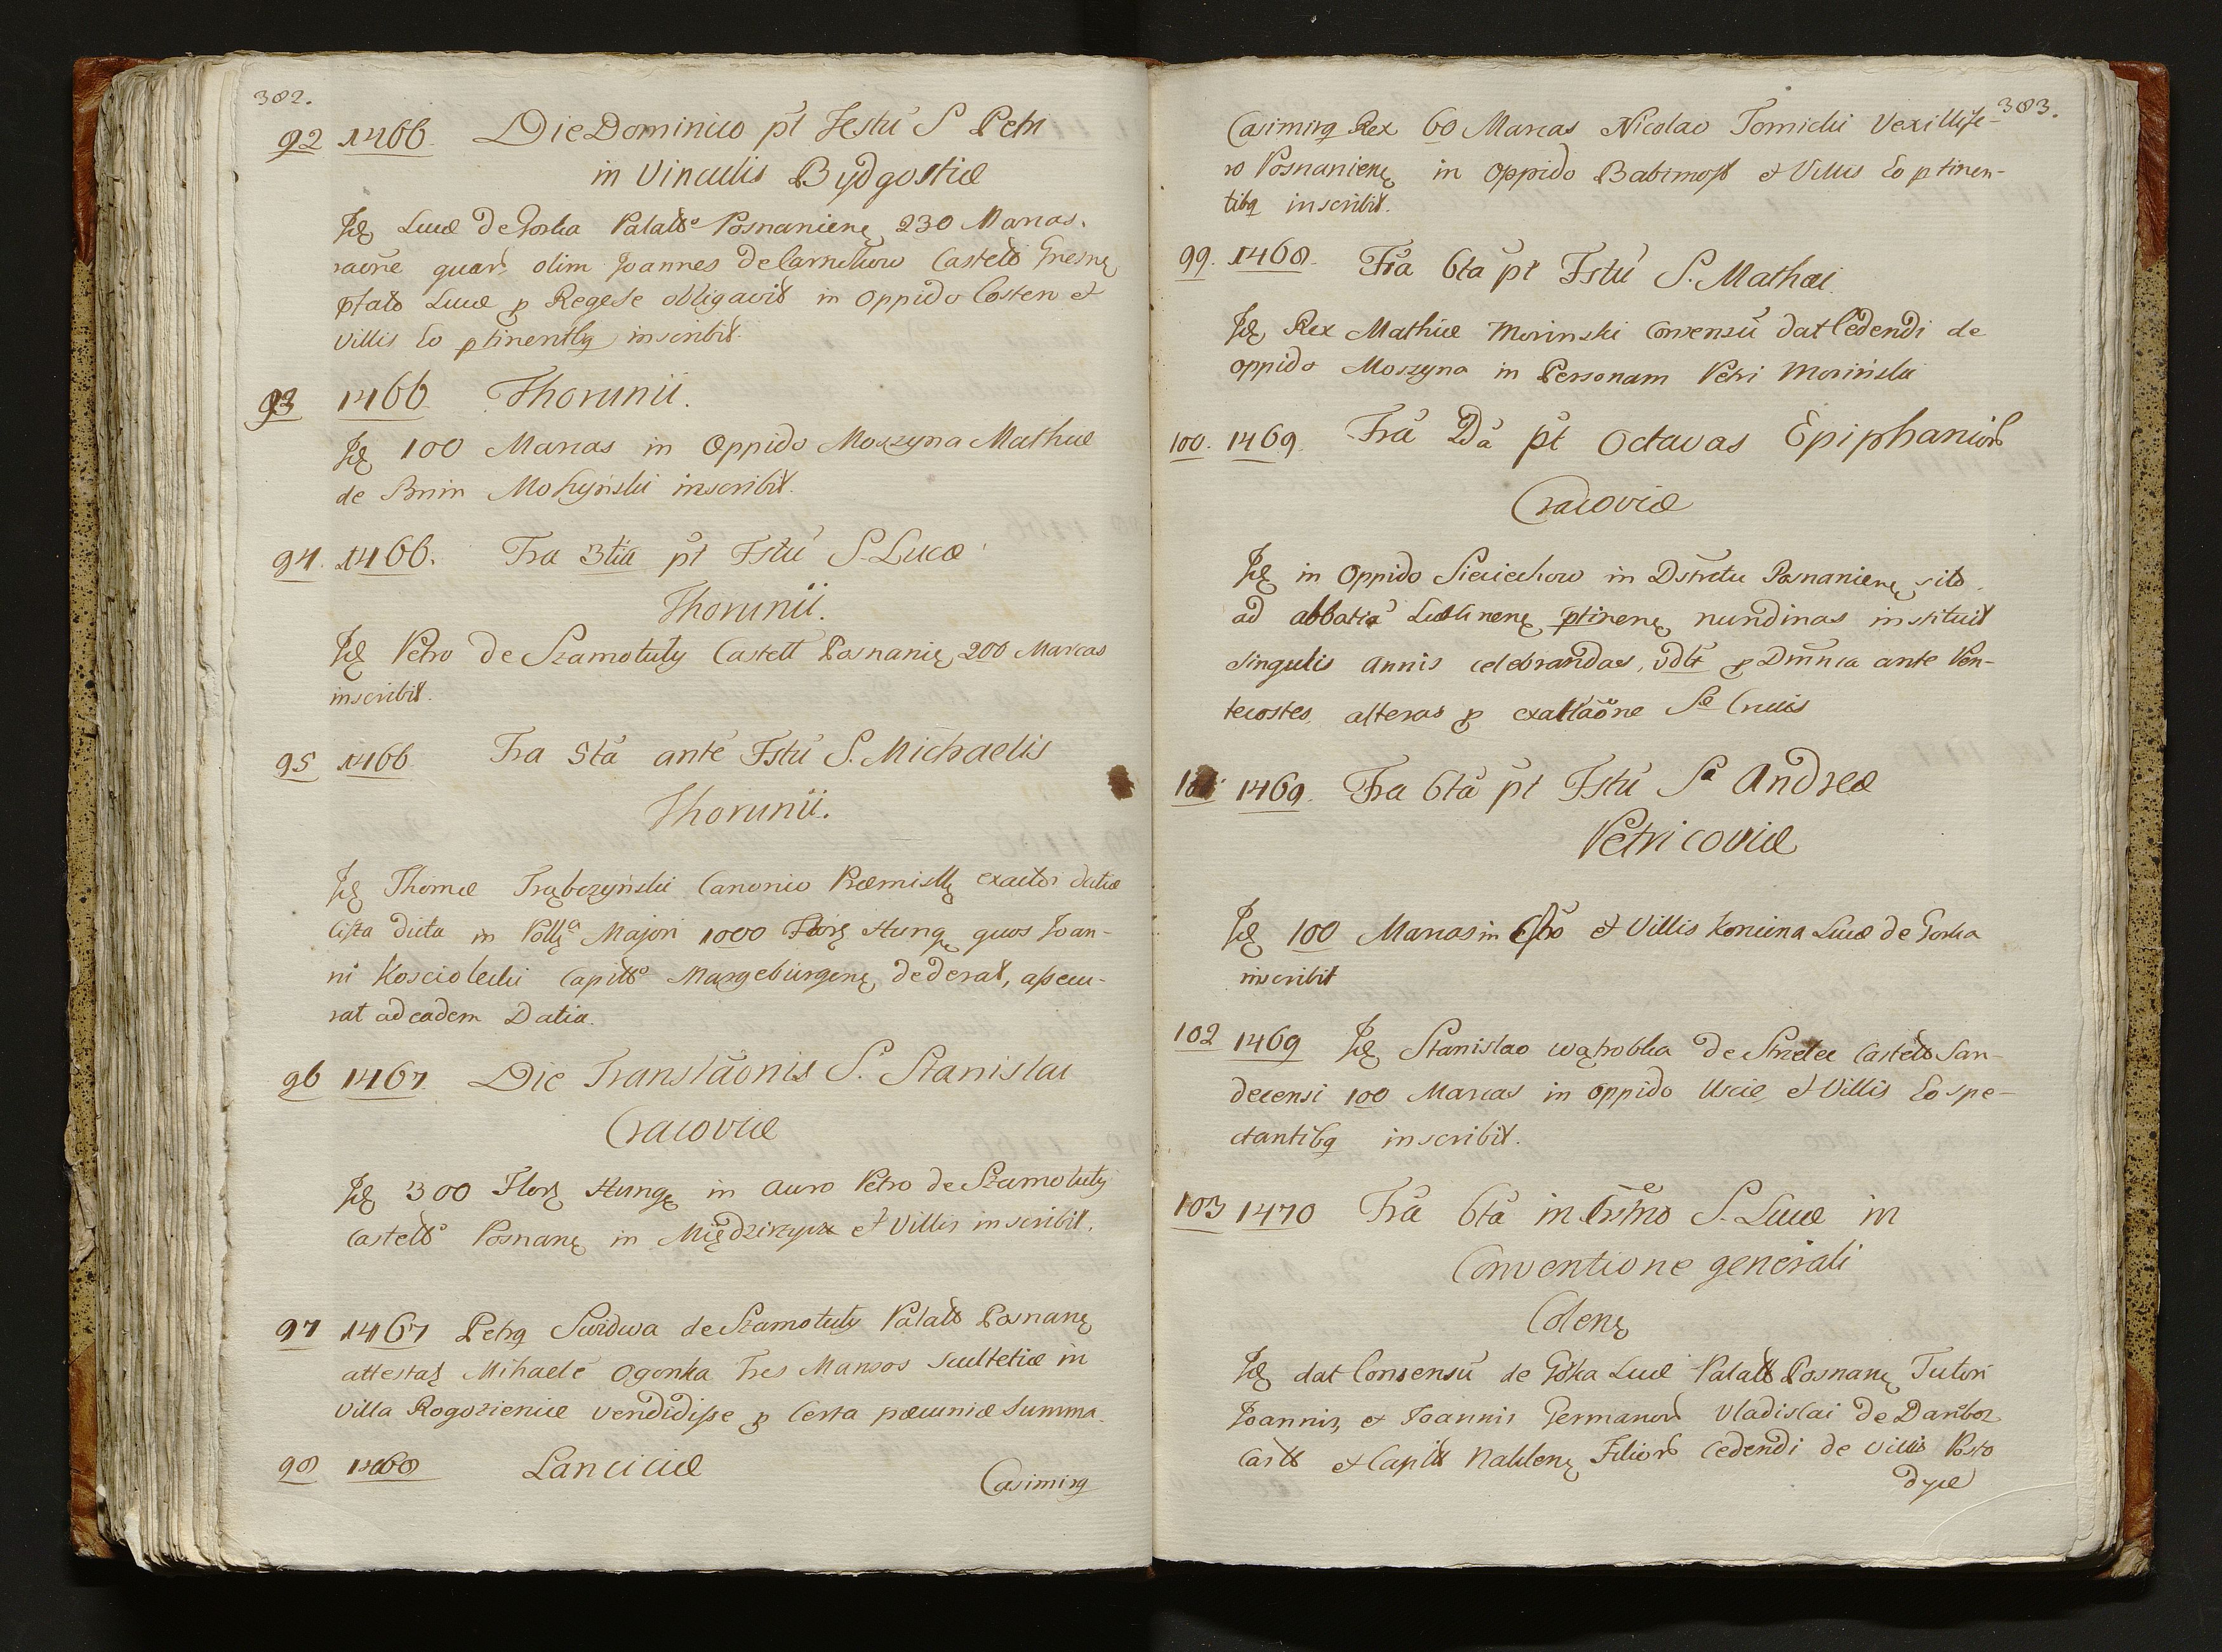 382.
92 1466. Die Dominico pt Festū S Petri
in Vinculis Bydgostiæ
Idę Lucæ de Gorka Palatto Posnanienę 230 Marcas.
raōne quarū olim Joannes de Carnikow Castelto Gnesnę
Lucæ p Regese obligavit in Oppido Costen et
villis Eo ptinentbq inscribit.
93 1466 Thorunii.
Idę 100 Marcas in Oppido Moszyna Mathiæ
de Bnin Moszyński inscribit.
94. 1466. Fra 3tia pt Fstū S. Lucæ
Thorunii.
Idę Petro de Szamotuły Castell Posnanię 200 Marcas
inscribit.
95 1466 Fra 5tā ante Fstū S. Michaelis
Thorunii.
Idę Thomæ Trąbczyński Canonico Præmislę exactori datiæ
Cista dicta in Pollą Majori 1000 Florę Hungę quos Joan-
ni Koscielecki Capitto Margeburgenę dederat, assecu-
rat ad eadem Datia.
96 1467. Die Translaōnis S. Stanislai
Cracoviæ
Idę 300 Florę Hungę in auro Petro de Szamotuły
Castelto Posnanę in Międzirzycze et Villis inscribit.
97 1467 Petrq Swidwa de Szamotuły Palatt Posnanę
attestaę Mihaelē Ogonka tres Mansos scultetiæ in
Villa Rogozienice vendidisse p Certa pæcuniæ Summa.
98 1468 Lanciciæ
Casimirq
383.
Casimirq Rex 60 Marcas Nicolao Tomicki Vexillife-
ro Posnanienę in Oppido Babimost et Villis Eo ptinen-
tibq inscribit.
99. 1468. Frā 6tā pt Fstū S. Mathæi
Idę Rex Mathiæ Morinski Consensū dat Cedendi de
oppido Moszyna in Personam Petri Moriński
100. 1469. Frā 2dā pt Octavas Epiphaniorū
Cracoviæ
Idę in Oppido Sieciechow in Dstrictu Posnanienę sito
ad abbatiā Lublinenę ptinenę nundinas instituit
singulis annis celebrandas, vdlt p Dmnica ante Pen-
tecostes alteras p exaltaōne Sæ Crucis
101. 1469. Fra 6tā pt Fstū Sa Andreæ
Petricoviæ
Idę 100 Marcas in Cstro et Villis Konina Lucæ de Gorka
inscribit
102 1469 Idę Stanislao Wątrobka de Strzelce Castelto San-
decensi 100 Marcas in Oppido Uscie et Villis Eo spe-
ctantibq inscribit.
103 1470 Frā 6tā in Crstno S. Lucæ in
Conventione generali
Colenę
Idę dat Consensū de Gorka Lucæ Palatt Posnanę Tutori
Joannis, et Joannis Germanorū Vladislai de Daniboz
Castt et Capitt Naklenę Filiorū Cedendi de villis Posto
dyce